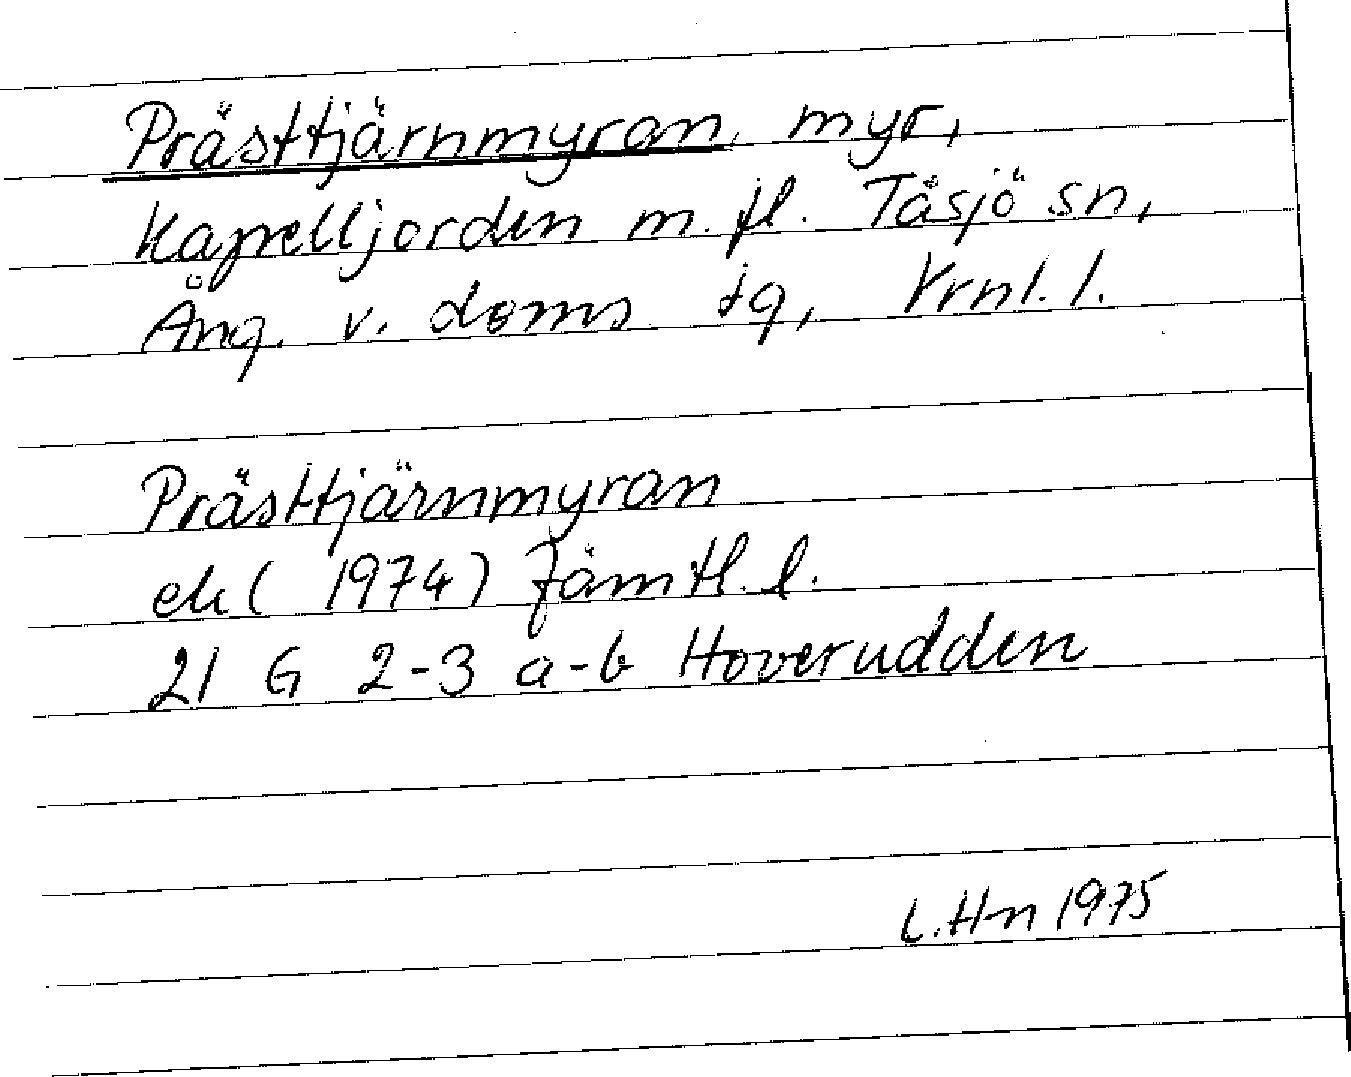 Prästtjärnmyran, myr,
Kapelljorden m. fl. Tåsjö sn,
Ång. v. doms tg, Vrnl. l.
Prästtjärnmyran
ek ( 1974) Jämtl. l.
21 G 2-3 a-b Hoverudden
L. Hn 1975